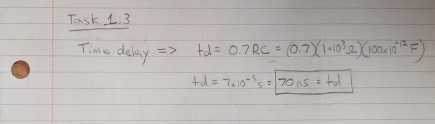 Task 1.3
Time delay => td = 0.7RC = (0.7)(1×10³Ω)(100×10⁻¹²F)
td = 7×10⁻⁸s = 70ns = td